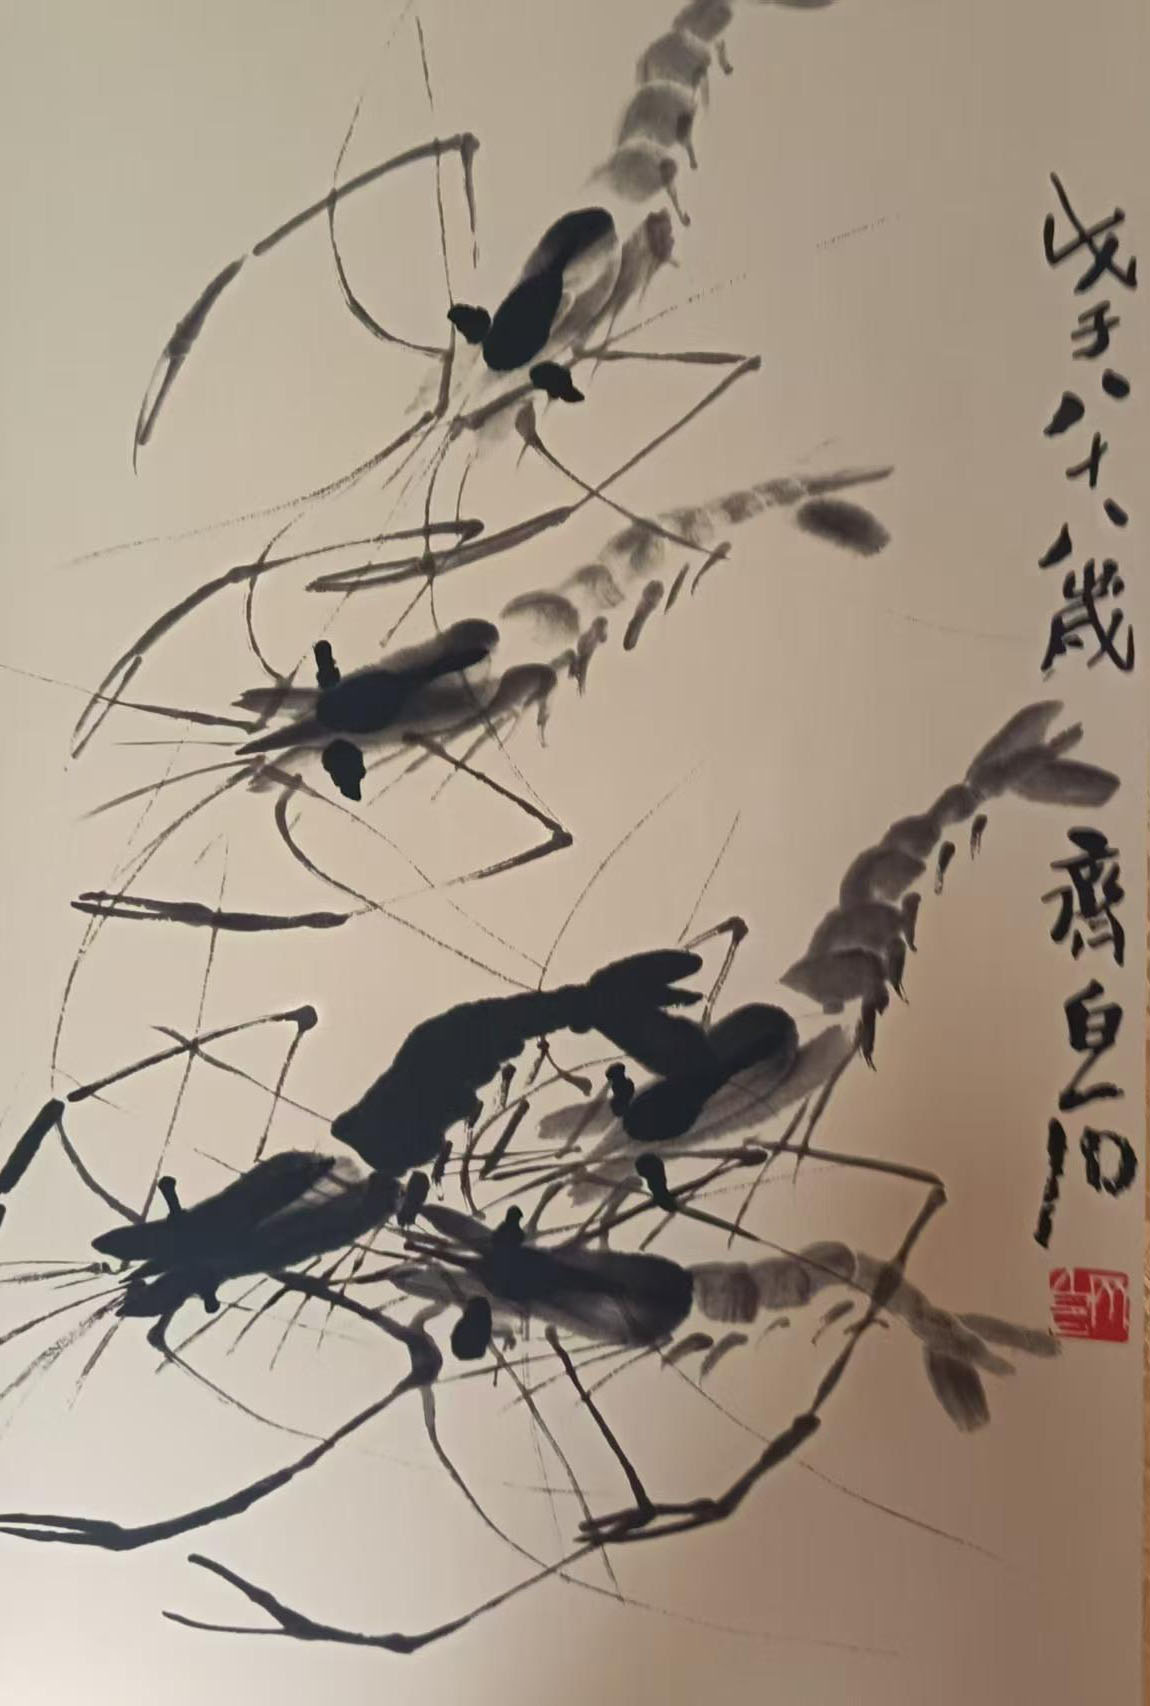 戊子八十八歲 齊白石